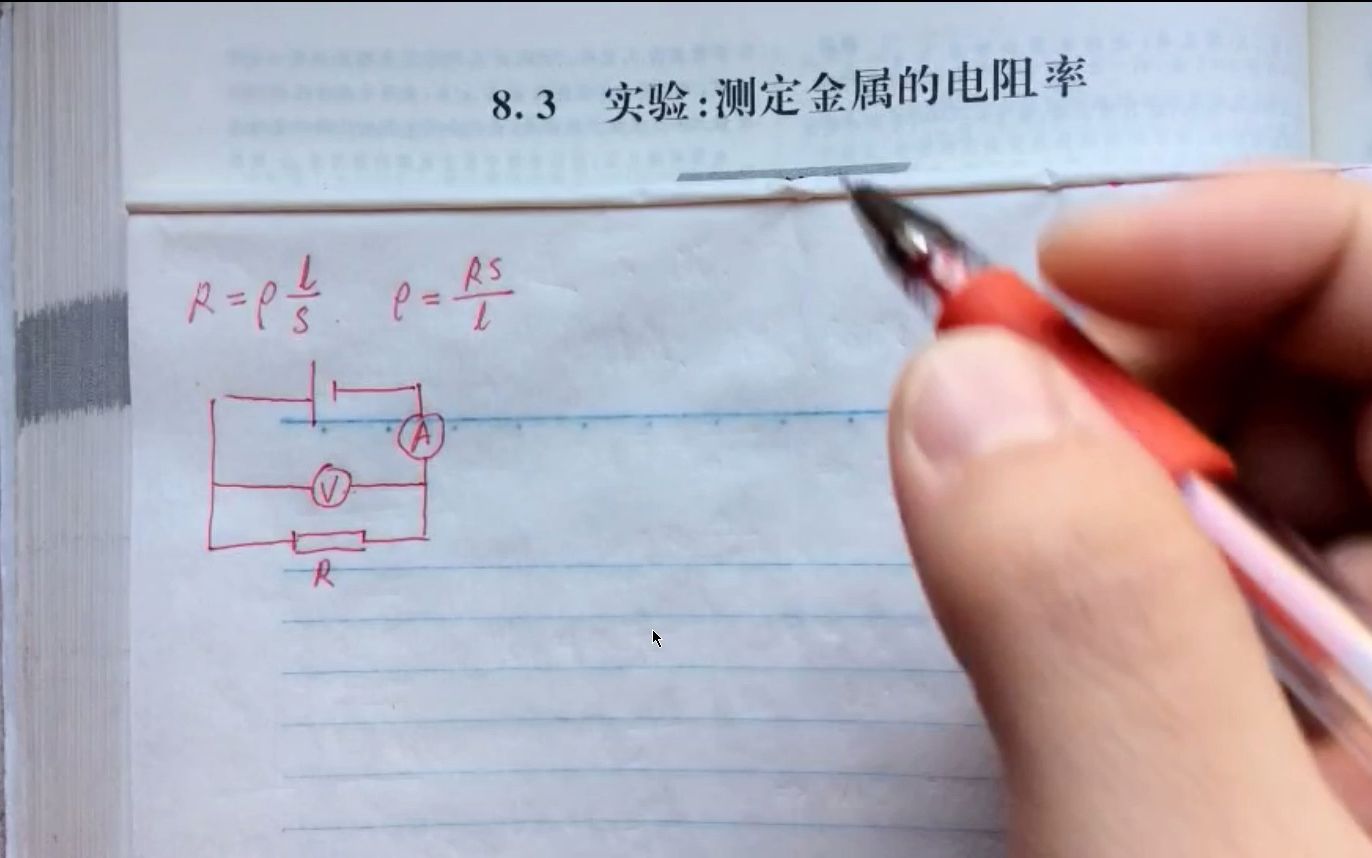 8.3 实验:测定金属的电阻率
R = ρ l/s ρ = RS/l
A
V
R